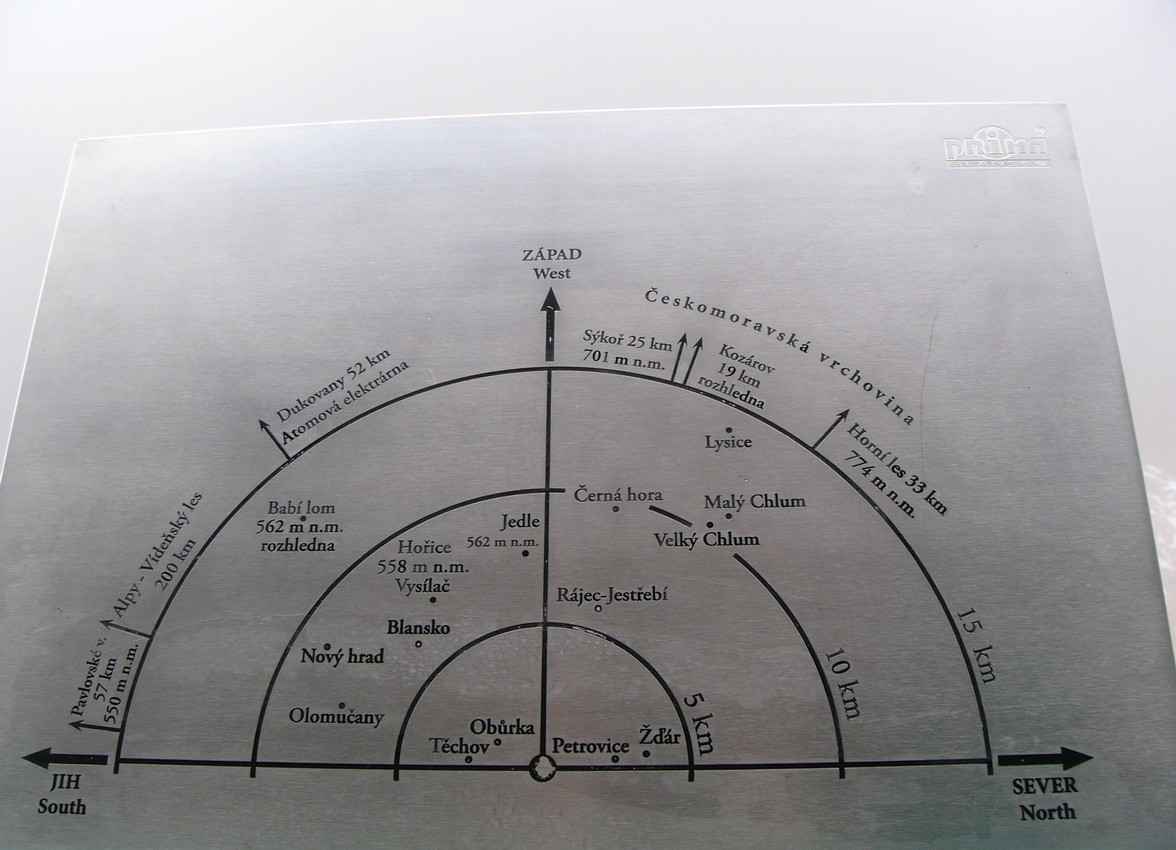 PRIMA
ZÁPAD
West
Českomoravská vrchovina
Sýkoř 25 km
701 m n.m.
Kozárov
19 km
rozhledna
Dukovany 52 km
Atomová elektrárna
Horní les 33 km
774 m n.m.
Lysice
Alpy - Vídeňský les
200 km
Babí lom
562 m n.m.
rozhledna
Černá hora
Malý Chlum
Velký Chlum
Jedle
562 m n.m.
Hořice
558 m n.m.
Vysílač
Rájec-Jestřebí
Blansko
Nový hrad
Pavlovské v.
57 km
550 m n.m.
Olomučany
Obůrka
Těchov
Petrovice
Žďár
5 km
10 km
15 km
JIH
South
SEVER
North